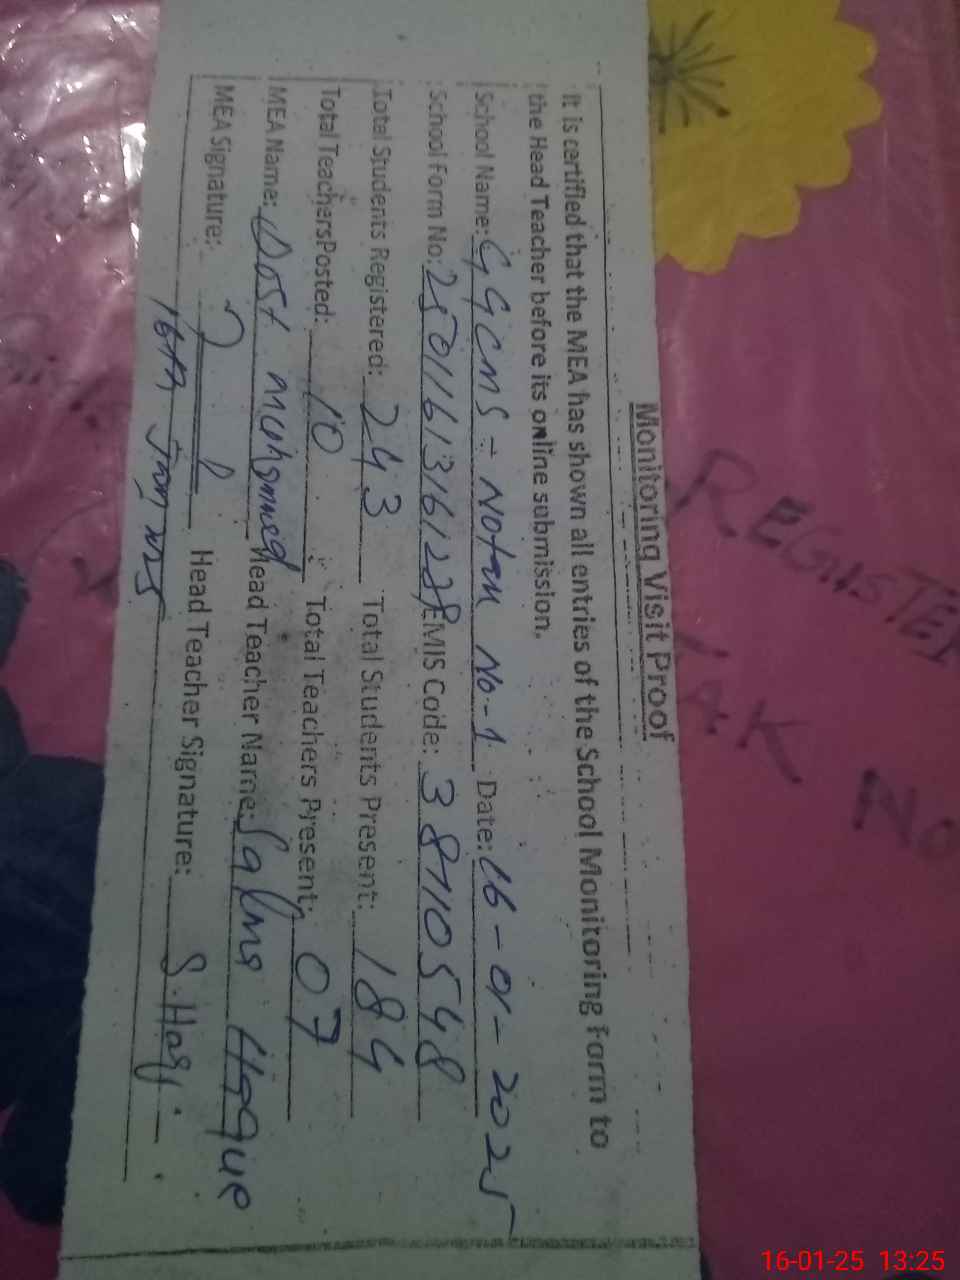 Monitoring Visit Proof
It is certified that the MEA has shown all entries of the School Monitoring Form to
the Head Teacher before its online submission.
School Name: GGCMS - Notan No-1 Date: 16-01-2025
School Form No: EMIS Code: 38710548
Total Students Registered: 243 Total Students Present: 184
Total TeachersPosted: 10 Total Teachers Present: 07
MEA Name: Dost Muhammad Head Teacher Name: Salma Haque
MEA Signature: Head Teacher Signature: S.Haq
16th Jan 2025
REGISTER
No
16-01-25 13:25